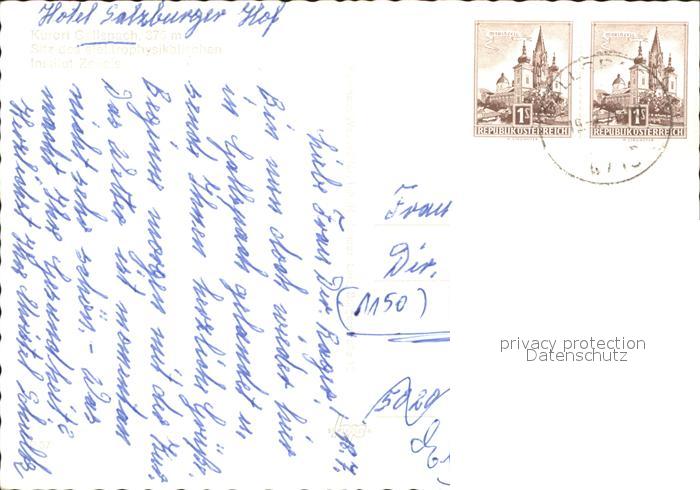 Hotel Salzburger Hof
Kurort Gallspach, 375 m
Sitz des elektrophysikalischen
Institut Zeileis
Liebe Frau Dir. Kager!
8.7.
Bin nun doch wieder hier
in Gallspach gelandet u.
sende Ihnen herzliche Grüße.
Beginne morgen mit der Kur.
Das Wetter ist momentan
nicht sehr schön. - Was
macht Ihre Gesundheit?
Herzlichst Ihre Christl
Frau
Dir.
(1150)
5020
MARIAZELL
1S
REPUBLIK ÖSTERREICH
MARIAZELL
1S
REPUBLIK ÖSTERREICH
4713
privacy protection
Datenschutz